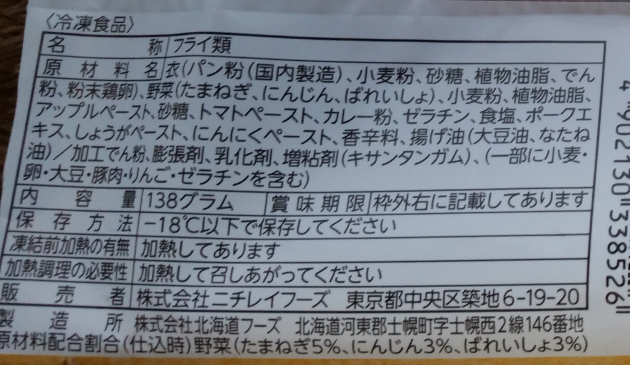 〈冷凍食品〉
名称 フライ類
原材料名 衣(パン粉(国内製造)、小麦粉、砂糖、植物油脂、でん
粉、粉末鶏卵)、野菜(たまねぎ、にんじん、ばれいしょ)、小麦粉、植物油脂、
アップルペースト、砂糖、トマトペースト、カレー粉、ゼラチン、食塩、ポークエ
キス、しょうがペースト、にんにくペースト、香辛料、揚げ油(大豆油、なたね
油)/加工でん粉、膨張剤、乳化剤、増粘剤(キサンタンガム)、(一部に小麦・
卵・大豆・豚肉・りんご・ゼラチンを含む)
内容量 138グラム 賞味期限 枠外右に記載してあります
保存方法 −18℃以下で保存してください
凍結前加熱の有無 加熱してあります
加熱調理の必要性 加熱して召しあがってください
販売者 株式会社ニチレイフーズ 東京都中央区築地6-19-20
製造所 株式会社北海道フーズ 北海道河東郡士幌町字士幌西2線146番地
原材料配合割合(仕込時)野菜(たまねぎ5%、にんじん3%、ばれいしょ3%)
4 902130 338526